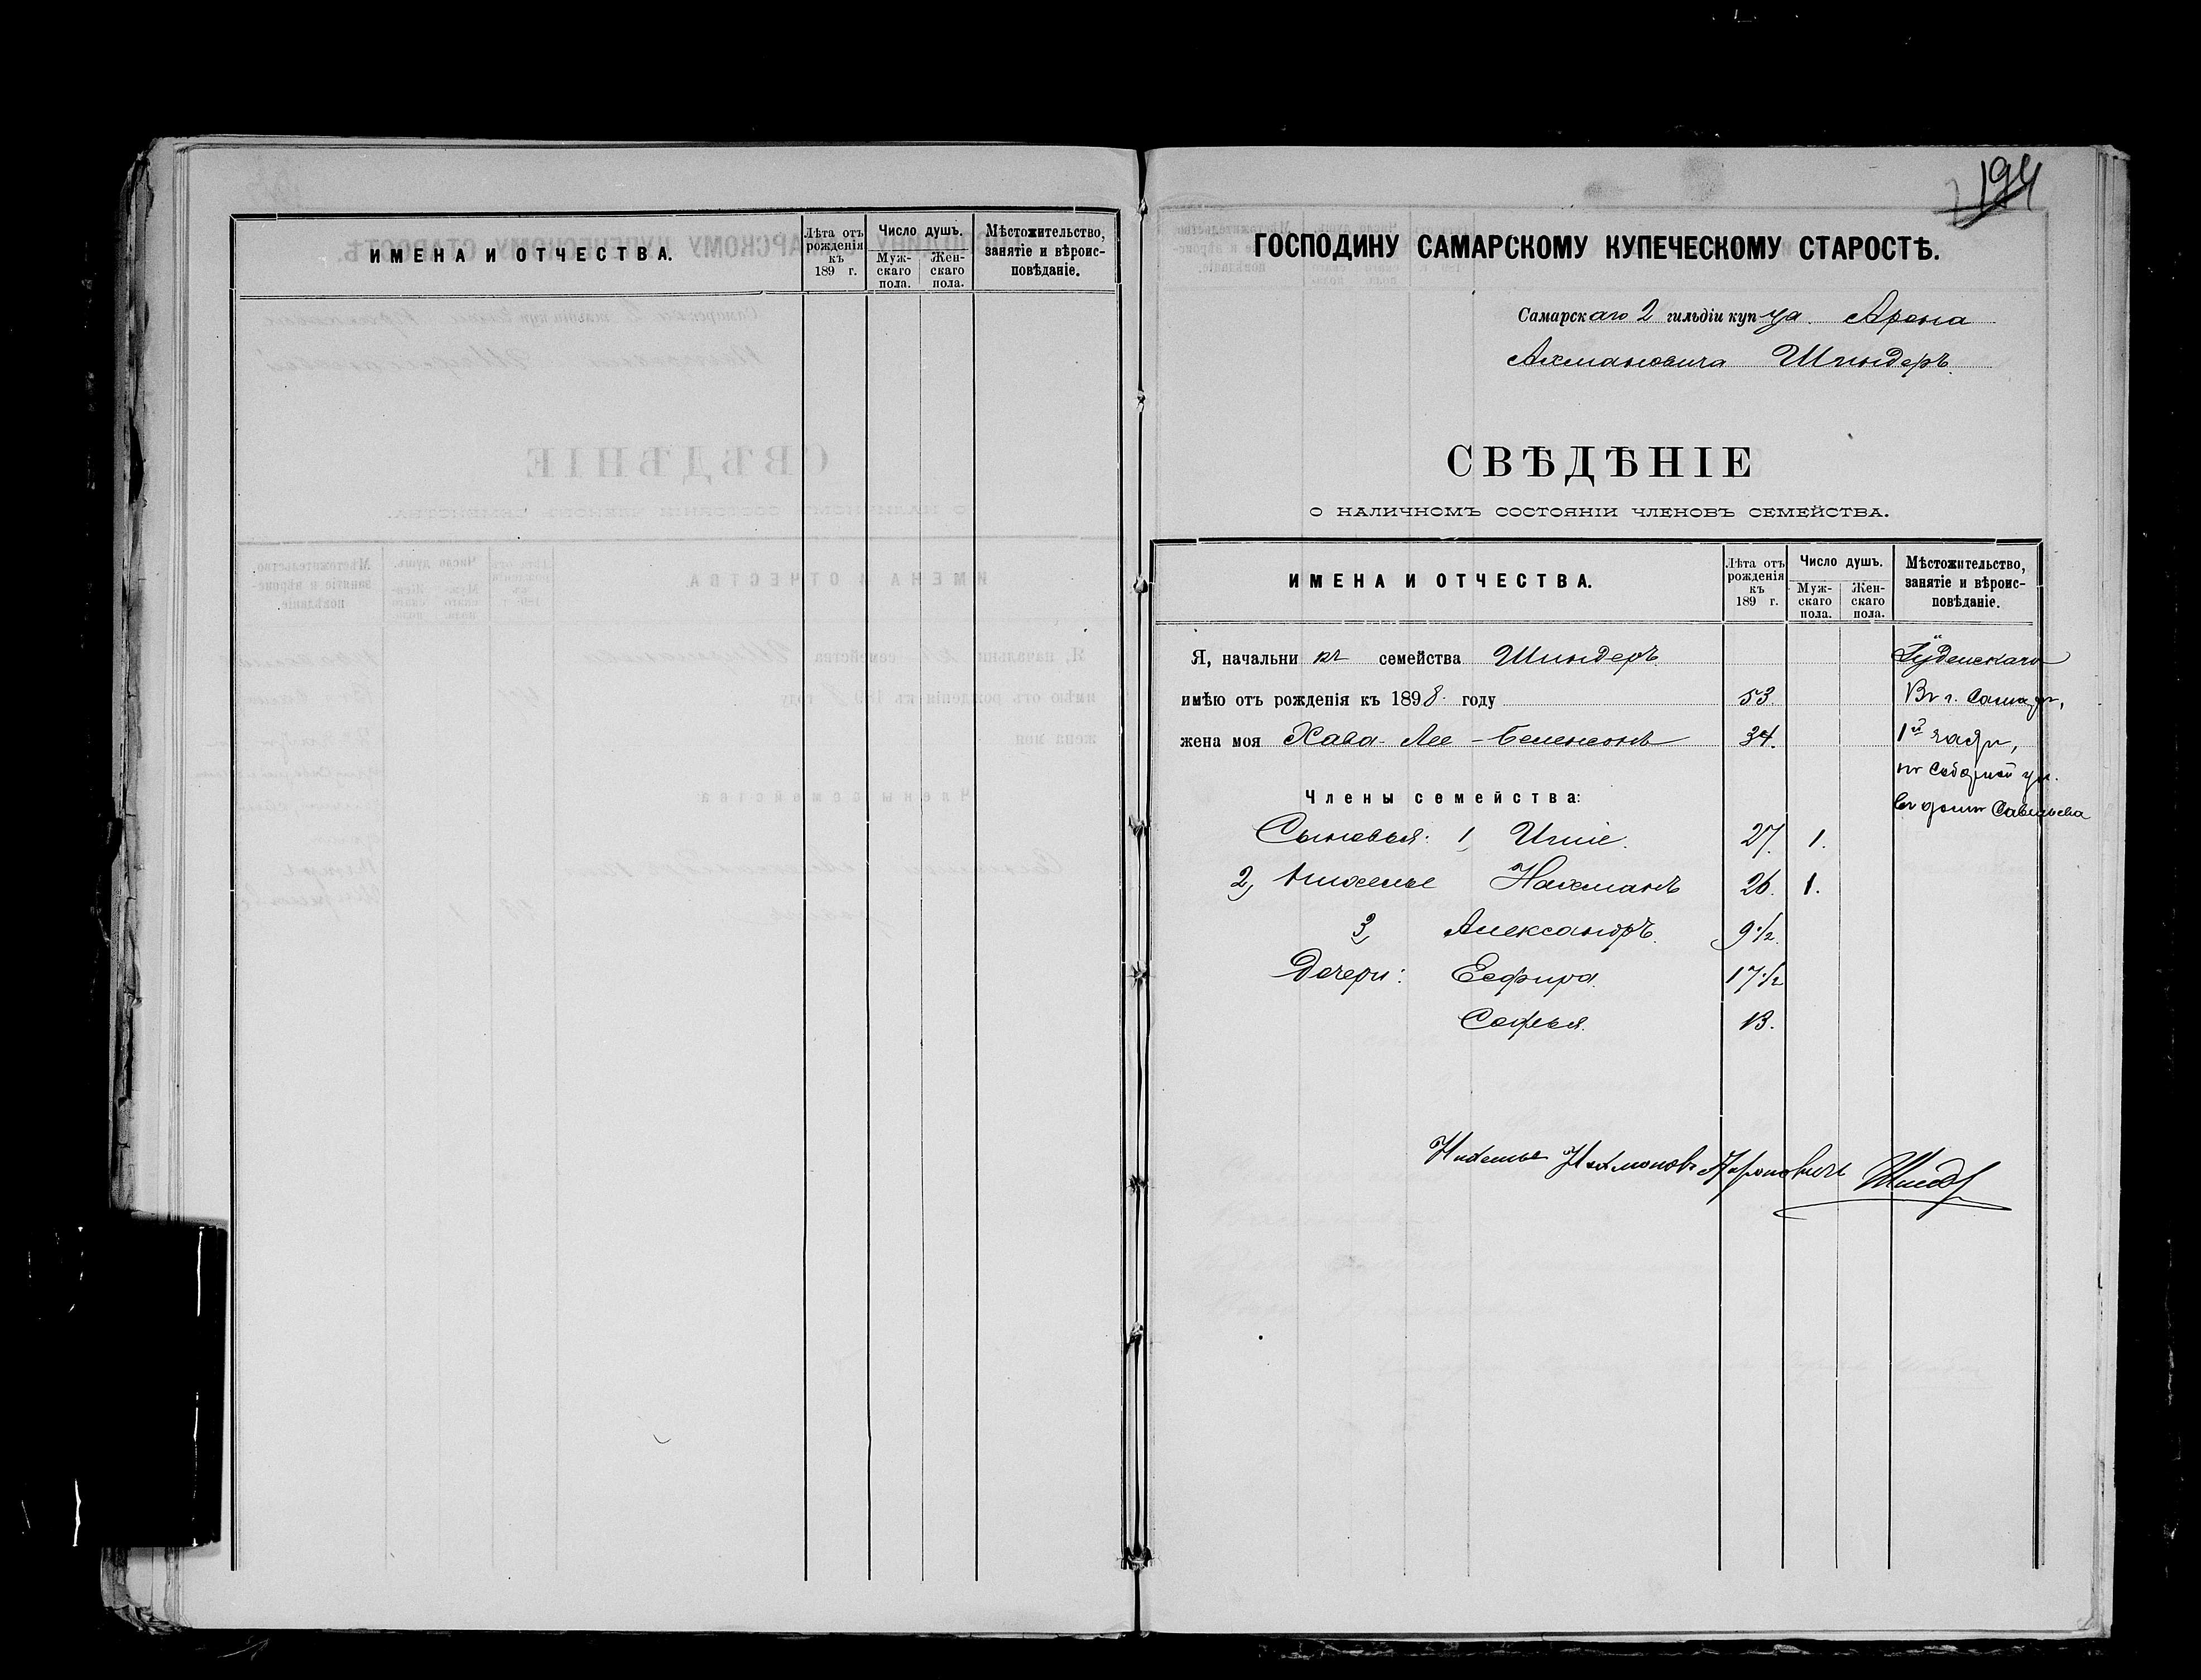 ИМЕНА И ОТЧЕСТВА.
Лѣта отъ рожденія къ 189 г.
Число душъ.
Мужскаго пола.
Женскаго пола.
Мѣстожительство, занятіе и вѣроисповѣданіе.
194
ГОСПОДИНУ САМАРСКОМУ КУПЕЧЕСКОМУ СТАРОСТѢ.
Самарскаго 2 гильдіи купца Арона
Ахмановича Шиндеръ.
СВѢДѢНІЕ
О НАЛИЧНОМЪ СОСТОЯНІИ ЧЛЕНОВЪ СЕМЕЙСТВА.
ИМЕНА И ОТЧЕСТВА.
Лѣта отъ рожденія къ 189 г.
Число душъ.
Мужскаго пола.
Женскаго пола.
Мѣстожительство, занятіе и вѣроисповѣданіе.
Я, начальникъ семейства Шиндеръ Іудейскаго
имѣю отъ рожденія къ 1898 году 53. Въ г. Самарѣ,
жена моя Хава-Лее 34. 1й части,
по Соборной ул.
Члены семейства: въ домѣ Савельева
Сыновья: 1, 27. 1.
2, Нахманъ 26. 1.
3, Александръ. 9 1/2.
Дочери: Есфира. 17 1/2
Софья. 13.
Ароновичъ Шинд